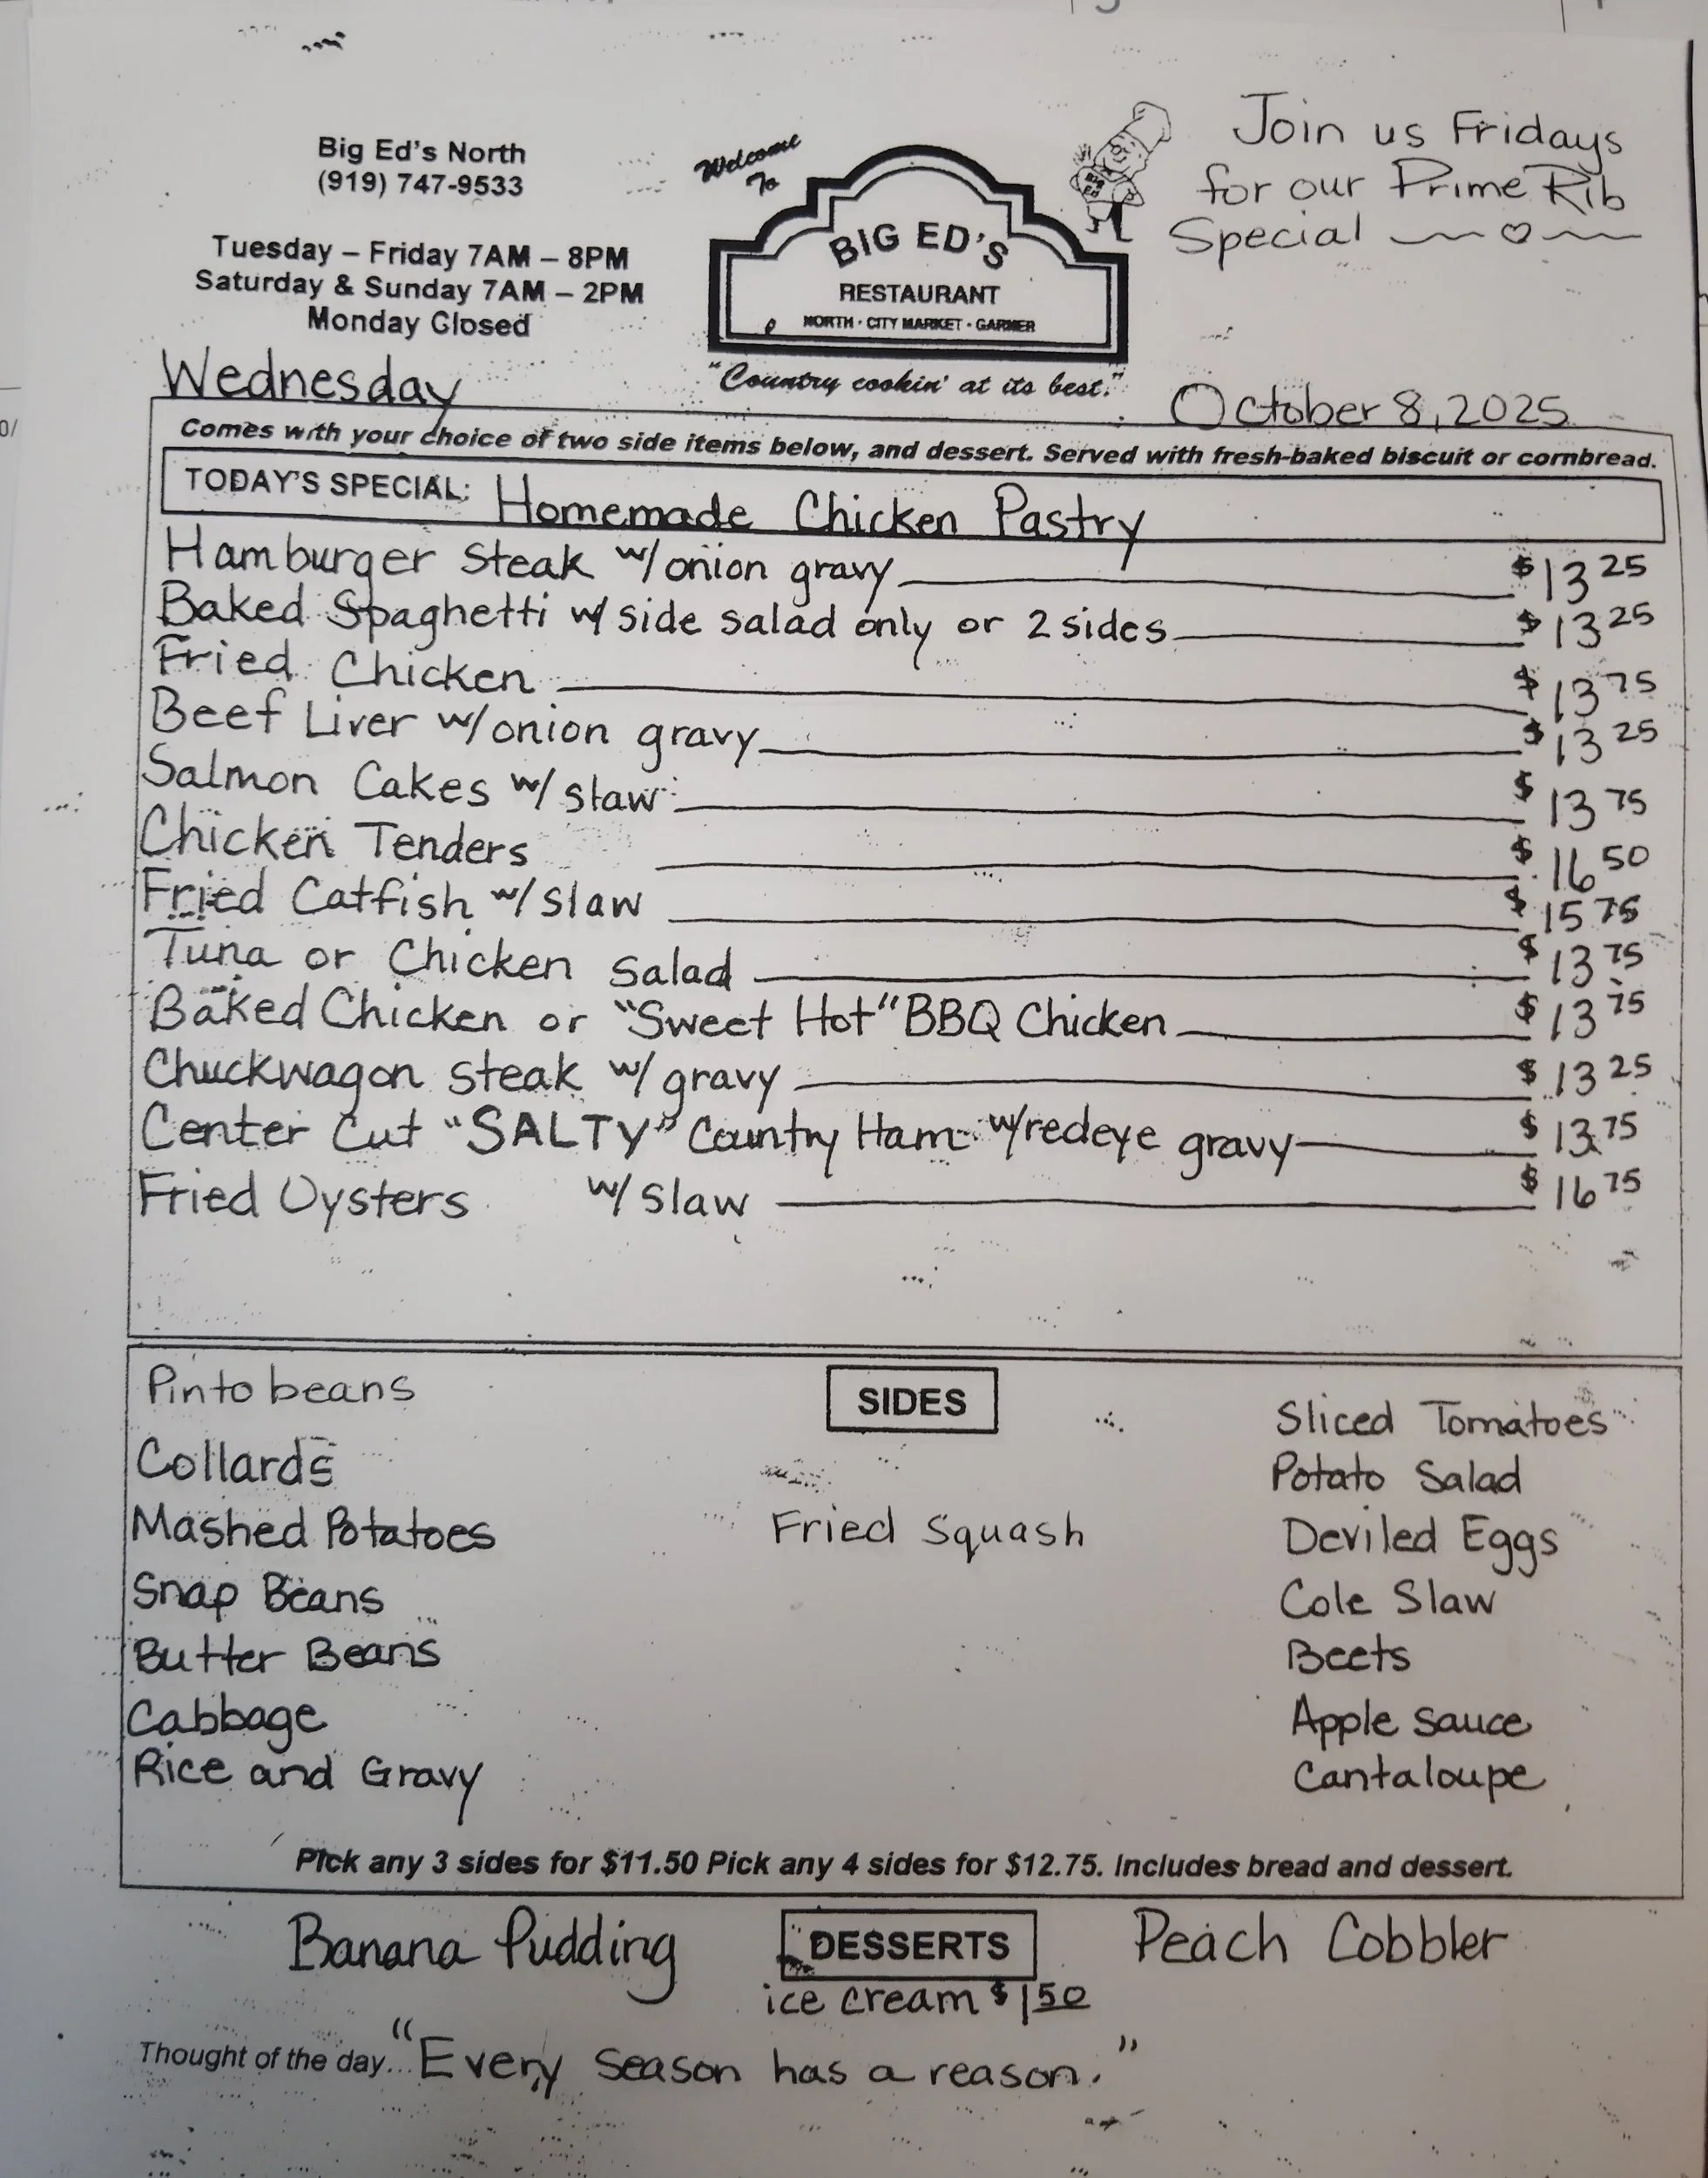 Big Ed's North
(919) 747-9533
Tuesday – Friday 7AM – 8PM
Saturday & Sunday 7AM – 2PM
Monday Closed
Welcome
To
BIG ED'S
RESTAURANT
NORTH · CITY MARKET · GARNER
"Country cookin' at its best."
Big
Ed
Join us Fridays
for our Prime Rib
Special
Wednesday
October 8, 2025
Comes with your choice of two side items below, and dessert. Served with fresh-baked biscuit or cornbread.
TODAY'S SPECIAL: Homemade Chicken Pastry
Hamburger Steak w/ onion gravy $13 25
Baked Spaghetti w/ side salad only or 2 sides $13 25
Fried Chicken $13 75
Beef Liver w/ onion gravy $13 25
Salmon Cakes w/ slaw $13 75
Chicken Tenders $16 50
Fried Catfish w/ slaw $15 75
Tuna or Chicken Salad $13 75
Baked Chicken or "Sweet Hot" BBQ Chicken $13 75
Chuckwagon Steak w/ gravy $13 25
Center Cut "SALTY" Country Ham w/ redeye gravy $13.75
Fried Oysters w/ slaw $16 75
SIDES
Pinto beans
Collards
Mashed Potatoes
Snap Beans
Butter Beans
Cabbage
Rice and Gravy
Fried Squash
Sliced Tomatoes
Potato Salad
Deviled Eggs
Cole Slaw
Beets
Apple Sauce
Cantaloupe
Pick any 3 sides for $11.50 Pick any 4 sides for $12.75. Includes bread and dessert.
Banana Pudding
DESSERTS
Peach Cobbler
ice cream $1 50
Thought of the day... "Every season has a reason."